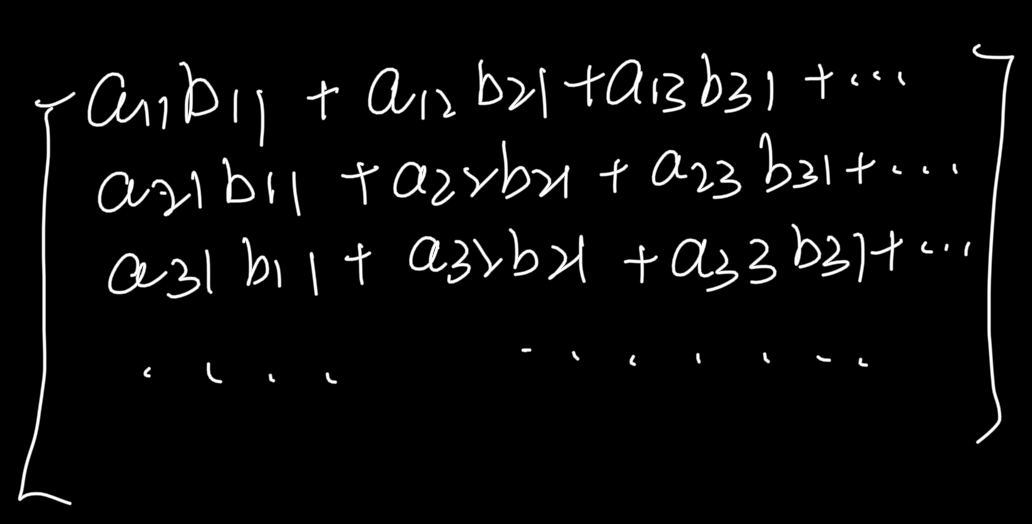 a₁₁b₁₁ + a₁₂b₂₁ + a₁₃b₃₁ + ...
a₂₁b₁₁ + a₂₂b₂₁ + a₂₃b₃₁ + ...
a₃₁b₁₁ + a₃₂b₂₁ + a₃₃b₃₁ + ...
. . . . . . . . . . .